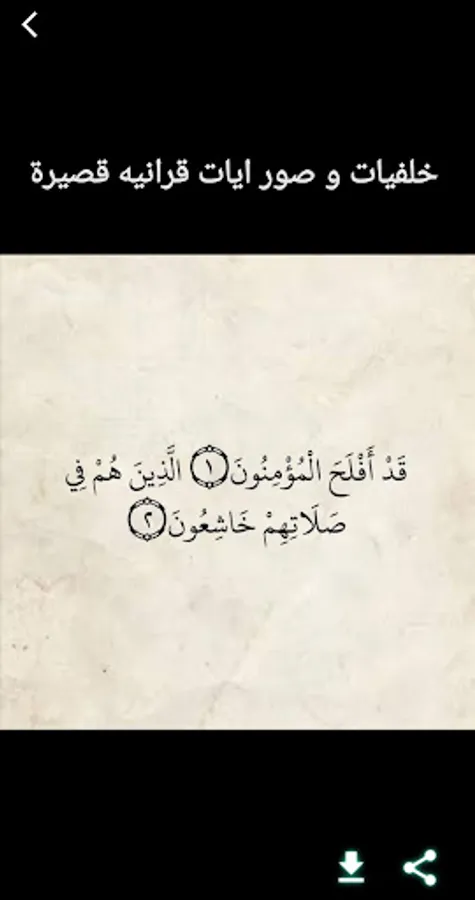 خلفيات و صور ايات قرانيه قصيرة
قَدْ أَفْلَحَ الْمُؤْمِنُونَ۝١ الَّذِينَ هُمْ فِي
صَلَاتِهِمْ خَاشِعُونَ۝٢